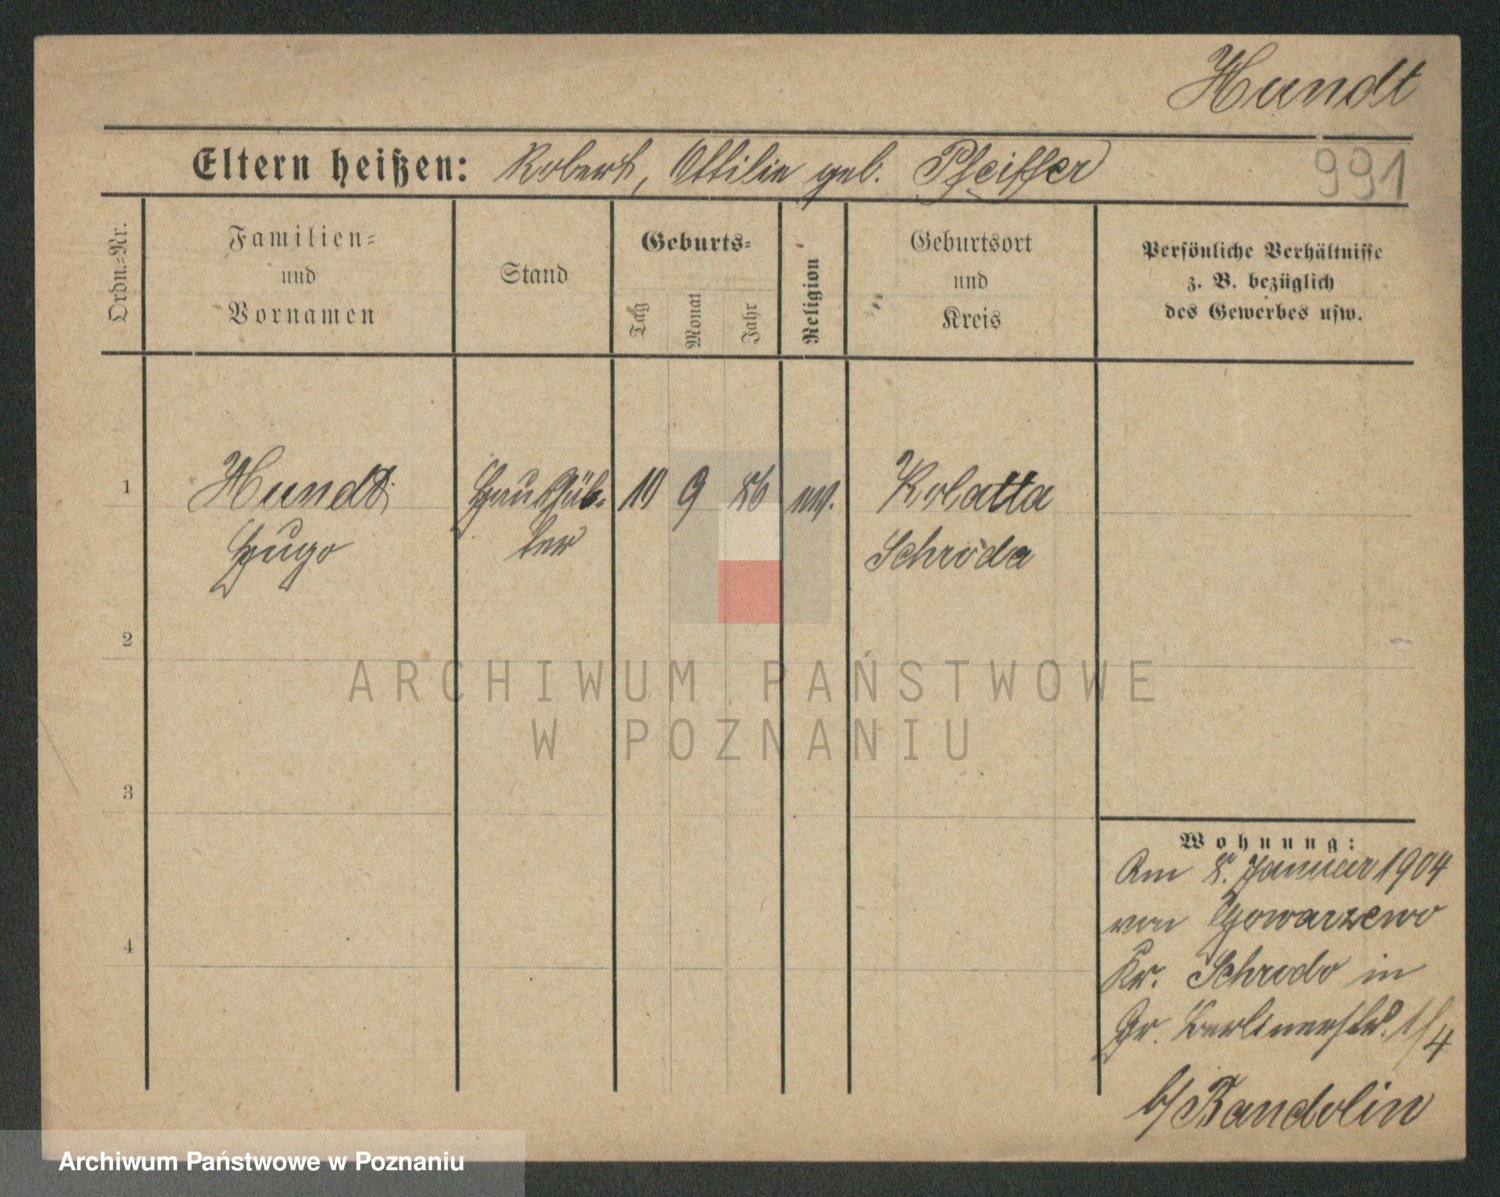 Hundt
Eltern heißen: Robert, Ottilie geb. Pfeiffer
991
Ordn.=Nr.
Familien=
und
Vornamen
Stand
Geburts=
Tag
Monat
Jahr
Religion
Geburtsort
und
Kreis
Persönliche Verhältnisse
z. B. bezüglich
des Gewerbes usw.
1
Hundt
Hugo
9 86
Kolatta
Schroda
2
3
4
Wohnung:
Am 8. Januar 1904
von Gowarzewo
Kr. Schroda in
Gr. Berlinerstr. 1/4
b/ Bandolin
ARCHIWUM PAŃSTWOWE
W POZNANIU
Archiwum Państwowe w Poznaniu